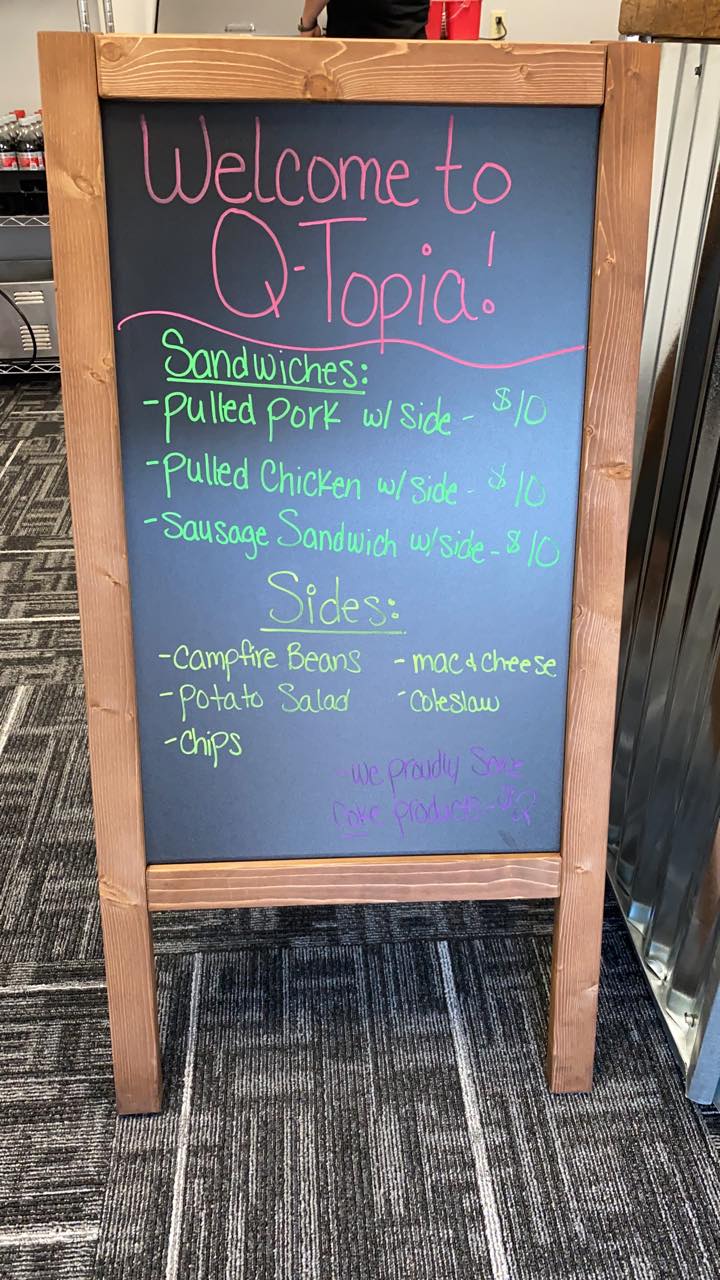 Welcome to
Q-Topia!
Sandwiches:
-Pulled Pork w/ side - $10
-Pulled Chicken w/ side - $10
-Sausage Sandwich w/side - $10
Sides:
-Campfire Beans
-mac & cheese
-Potato Salad
-Coleslaw
-Chips
-We proudly Serve
Coke products - $2